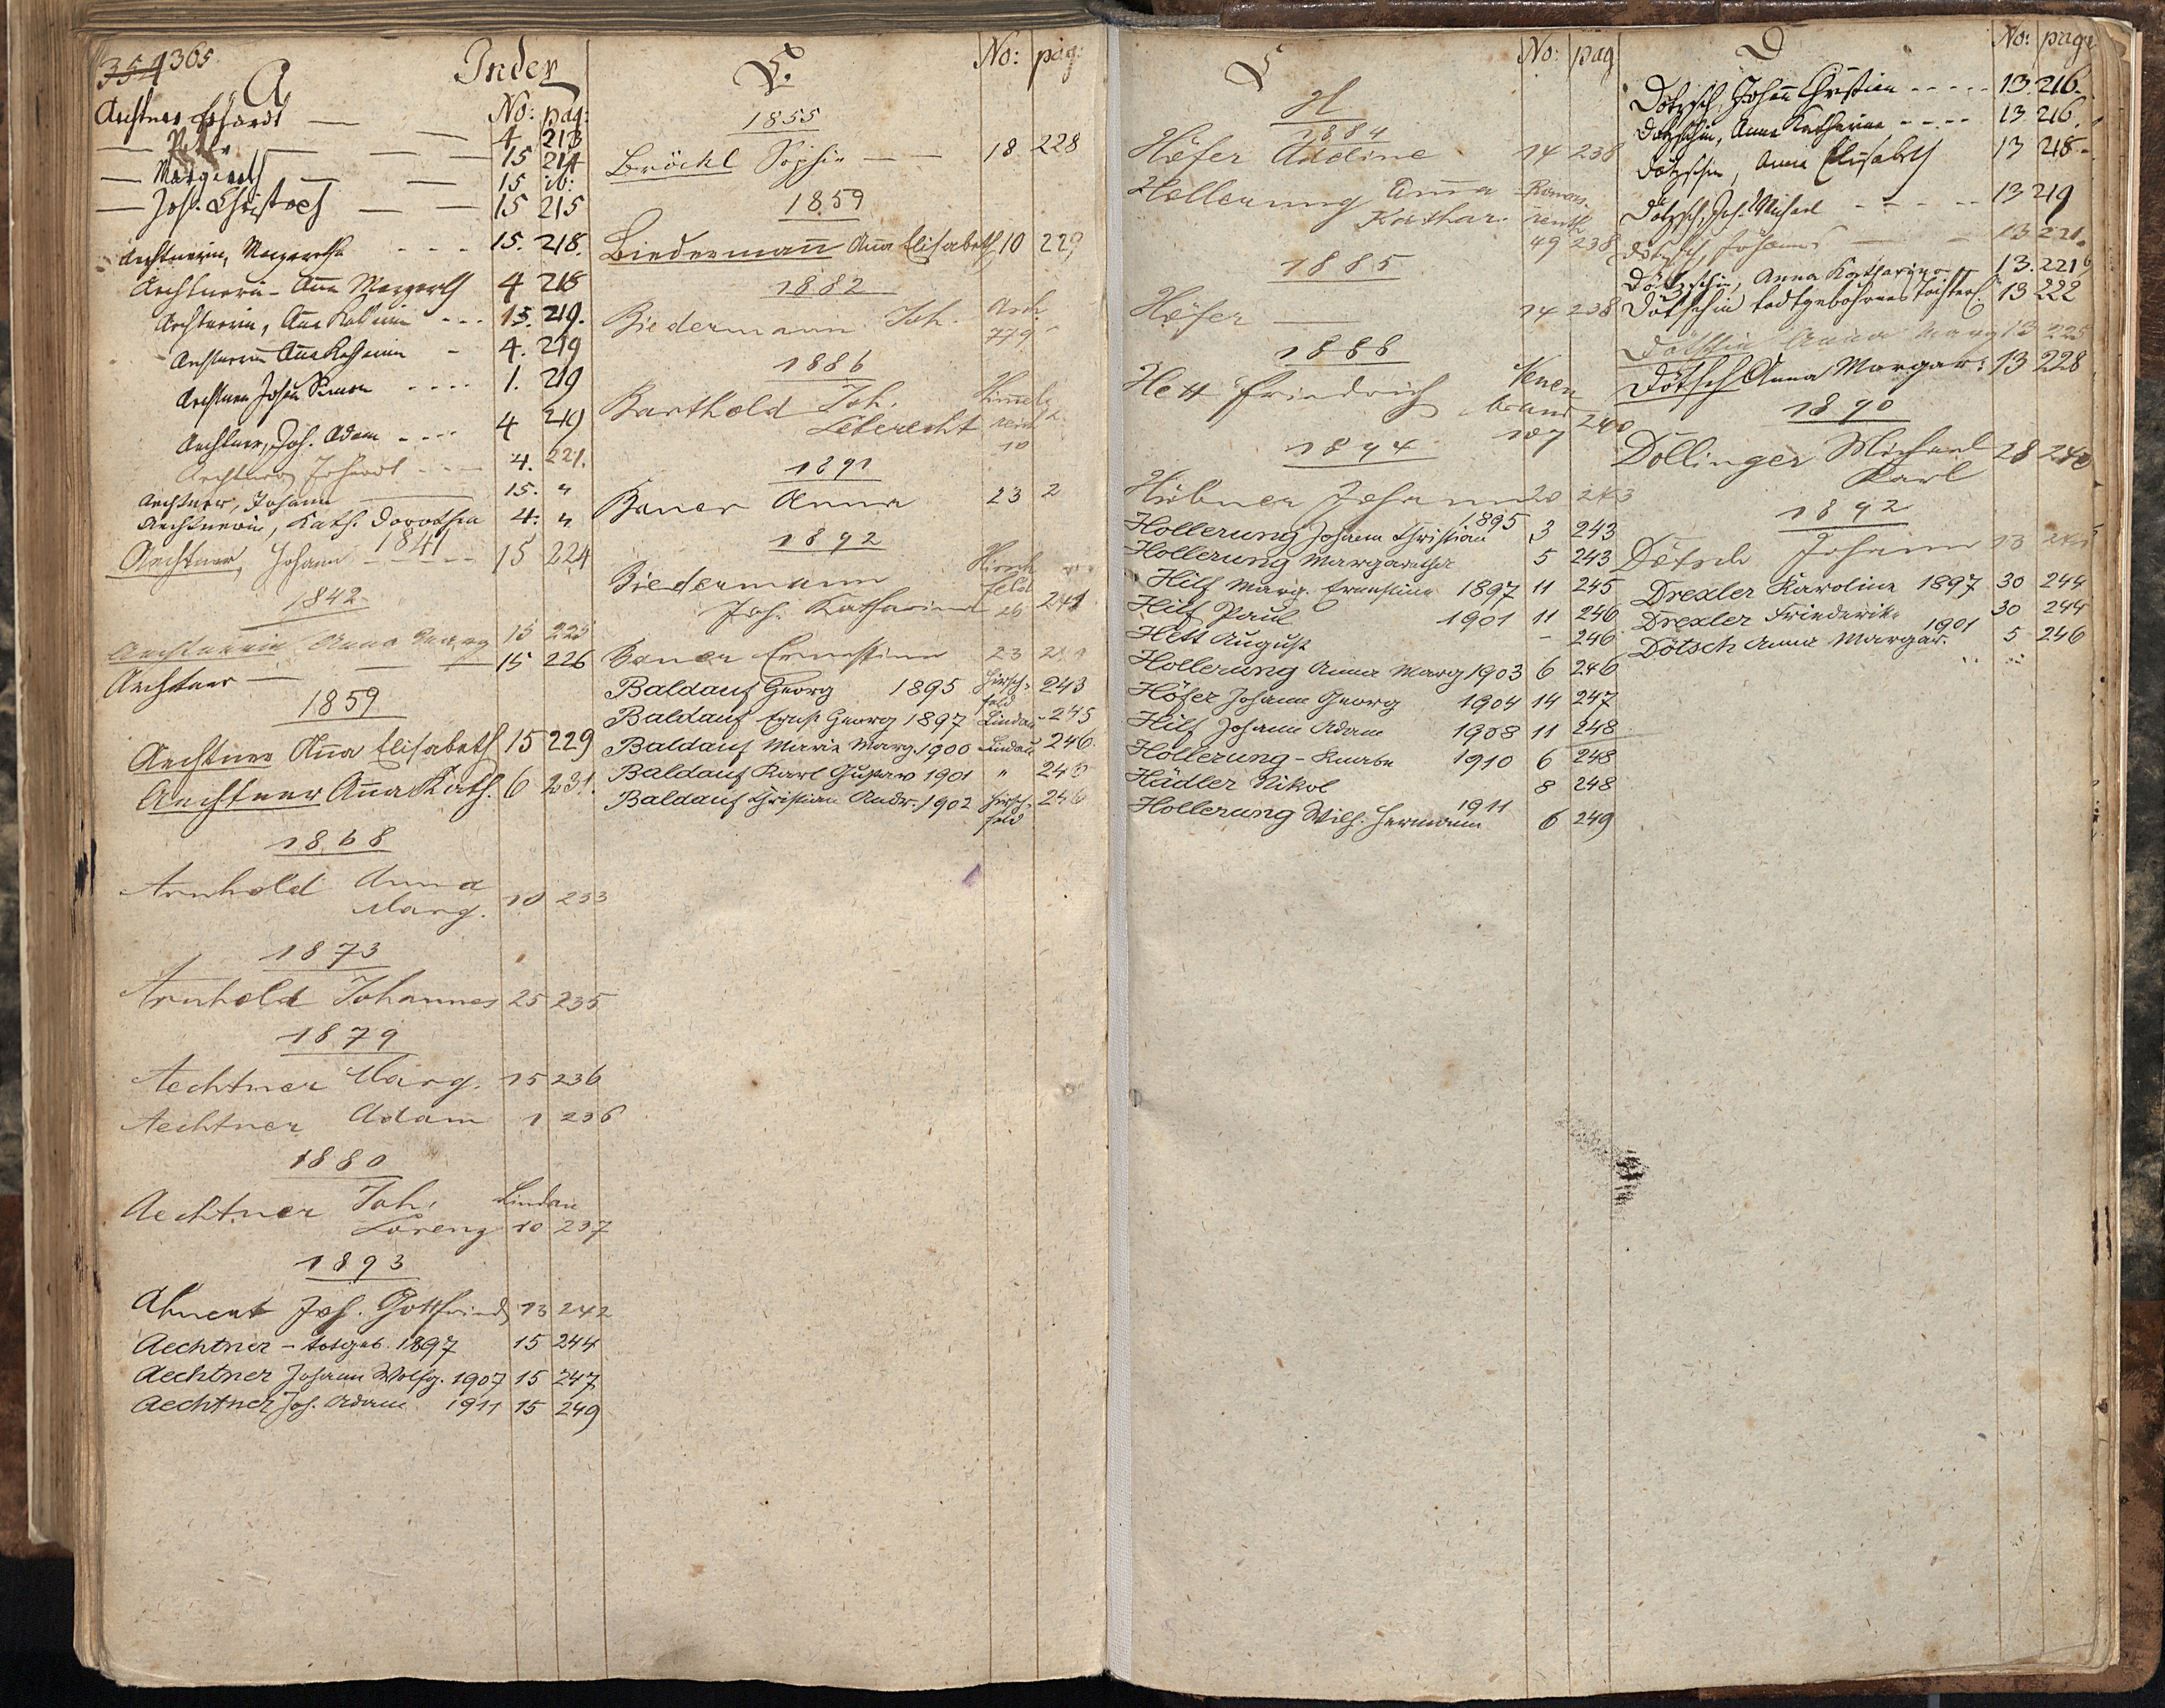 354 365
A
Index
No: pag:
Aechtner Erhardt — 4. 213
— — — 15 214
— Margareth — — 15 ib:
— Joh. Christoph — — 15 215
Aechtnerin, Margaretha - - - 15. 218.
Aechtnerin - Anna Margareth 4 218
Aechtnerin, Anna - - - 15. 219.
Aechtnerin Anna - 4. 219
Aechtner Johann Simon - - - - 1. 219
Aechtner, Joh. Adam - - - - 4 219
Aechtner Erhardt - - - 4. 221.
Aechtner, Johann 15. "
Aechtnerin, Kath. Dorothea 4. "
1841
Aechtner, Johann - - - - 15 224
1842
Aechtnerin Anna 15 225
Aechtner — 15 226
1859
Aechtner Anna Elisabeth 15 229
Aechtner Anna Kath. 6 231.
1868
Arnhold Anna
Marg. 10 233
1873
Arnhold Johannes 25 235
1879
Aechtner Marg. 15 236
Aechtner Adam 1 236
1880
Aechtner Joh. Lindau
Lorenz 10 237
1893
Joh. Gottfried 13 242
Aechtner - totgeb. 1897 15 244
Aechtner Johann Wolfg. 1907 15 247
Aechtner Joh. Adam 1911 15 249
B.
No: pag:
1855
Bröckl Sophie — — 18 228
1859
Biedermann Anna Elisabeth 10 229
1882
Biedermann Joh.
1886
Barthold Joh.
Leberecht
10
1891
Bauer Anna 23 2
1892
Biedermann Hirsch
feld
Joh. Katharina 26 241
Bauer Ernestine 23
Baldauf Georg 1895 Hirsch-
feld 243
Baldauf Ernst Georg 1897 Lindau 245
Baldauf Maria Marg. 1900 Lindau 246.
Baldauf Karl Gustav 1901 " 246
Baldauf Christian Andr. 1902 Hirsch-
feld 246
C
No: pag
H
1884
Höfer Andine 14 238
Hollerung Anna
Kathar. 49 238
1885
Höfer — 14 238
1888
Hett Friedrich Neuen
brand
107 240
1894
Hübner Johann 20 243
Hollerung Johann Christian 1895 3 243
Hollerung Margaretha 5 243
Hilf Marg. Ernestine 1897 11 245
Hilf Paul 1901 11 246
Hett August - 246
Hollerung Anna Marg 1903 6 246
Höfer Johann Georg 1904 14 247
Hilf Johann Adam 1908 11 248
Hollerung - Knabe 1910 6 248
Hädler Nikol 8 248
Hollerung Wilh. Hermann 1911 6 249
D
No: pag:
Dötzsch, Johann Christian - - - - - 13. 216.
Dötzschin, Anna Katharina - - - - 13 216.
Dötzschin, Anna Elisabeth 13 218.
Dötzsch, Joh. Michael - - - - - 13 219
Dötzsch, Johann — — 13 221.
Dötzschin, Anna Katharina 13. 221
Dötschin todtgebohrnes Töchterl. 13 222
Dötschin Anna Marg 13 225
Dötsch Anna Margar: 13 228
1890
Döllinger Michael
Karl 28 240
1892
Dötsch Johann 13
Drexler Karolina 1897 30 244
Drexler Friederike 30 244
Dötsch Anna Margar. 1901 5 246